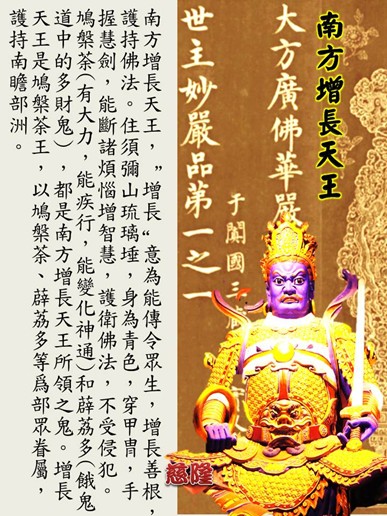 南方增長天王
大方廣佛華嚴
于闐國三
世主妙嚴品第一之一
南方增長天王，”增長“意為能傳令眾生，增長善根，
護持佛法。住須彌山琉璃埵，身為青色，穿甲冑，手
握慧劍，能斷諸煩惱增智慧，護衛佛法，不受侵犯。
鳩槃荼(有大力，能疾行，能變化神通)和薜荔多(餓鬼
道中的多財鬼)，都是南方增長天王所領之鬼。增長
天王是鳩槃荼王，以鳩槃荼、薜荔多等爲部眾眷屬，
護持南瞻部洲。
慈隆